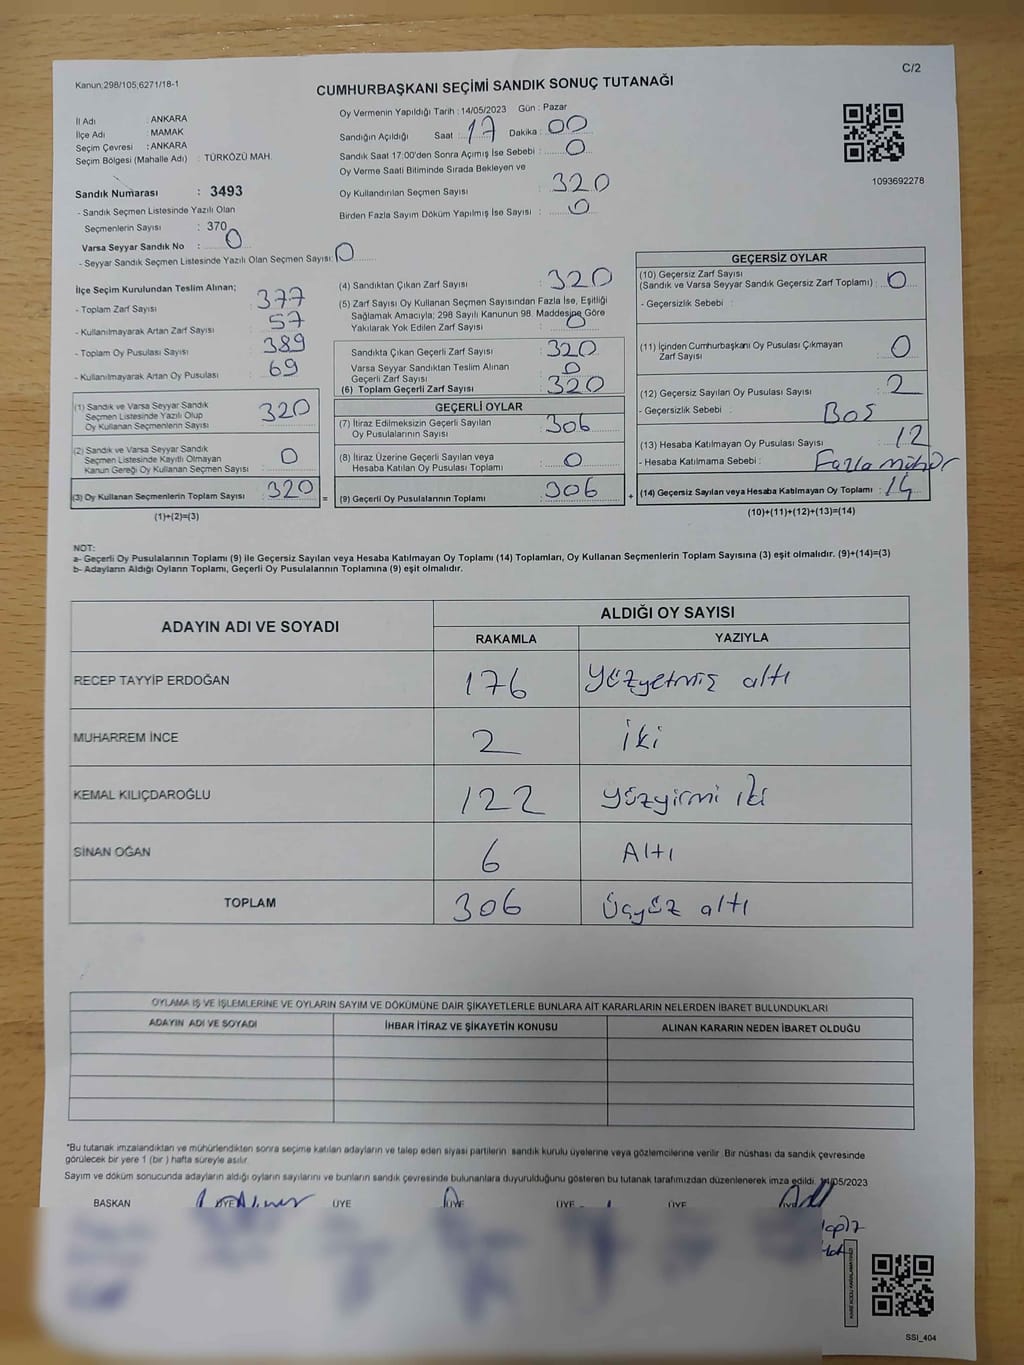 Kanun;298/105;6271/18-1
C/2
CUMHURBAŞKANI SEÇİMİ SANDIK SONUÇ TUTANAĞI
İl Adı : ANKARA
İlçe Adı : MAMAK
Seçim Çevresi : ANKARA
Seçim Bölgesi (Mahalle Adı) : TÜRKÖZÜ MAH.
Sandık Numarası : 3493
- Sandık Seçmen Listesinde Yazılı Olan
Seçmenlerin Sayısı : 370
Varsa Seyyar Sandık No : 0
- Seyyar Sandık Seçmen Listesinde Yazılı Olan Seçmen Sayısı: 0
Oy Vermenin Yapıldığı Tarih : 14/05/2023 Gün : Pazar
Sandığın Açıldığı Saat : 17 Dakika : 00
Sandık Saat 17:00'den Sonra Açımış İse Sebebi : 0
Oy Verme Saati Bitiminde Sırada Bekleyen ve
Oy Kullandırılan Seçmen Sayısı : 320
Birden Fazla Sayım Döküm Yapılmış İse Sayısı : 0
1093692278
İlçe Seçim Kurulundan Teslim Alınan;
- Toplam Zarf Sayısı : 377
- Kullanılmayarak Artan Zarf Sayısı : 57
- Toplam Oy Pusulası Sayısı : 389
- Kullanılmayarak Artan Oy Pusulası : 69
(1) Sandık ve Varsa Seyyar Sandık
Seçmen Listesinde Yazılı Olup
Oy Kullanan Seçmenlerin Sayısı : 320
(2) Sandık ve Varsa Seyyar Sandık
Seçmen Listesinde Kayıtlı Olmayan
Kanun Gereği Oy Kullanan Seçmen Sayısı : 0
(3) Oy Kullanan Seçmenlerin Toplam Sayısı : 320 =
(1)+(2)=(3)
(4) Sandıktan Çıkan Zarf Sayısı : 320
(5) Zarf Sayısı Oy Kullanan Seçmen Sayısından Fazla İse, Eşitliği
Sağlamak Amacıyla; 298 Sayılı Kanunun 98. Maddesine Göre
Yakılarak Yok Edilen Zarf Sayısı : 0
Sandıkta Çıkan Geçerli Zarf Sayısı : 320
Varsa Seyyar Sandıktan Teslim Alınan
Geçerli Zarf Sayısı : 0
(6) Toplam Geçerli Zarf Sayısı : 320
GEÇERLİ OYLAR
(7) İtiraz Edilmeksizin Geçerli Sayılan
Oy Pusulalarının Sayısı : 306
(8) İtiraz Üzerine Geçerli Sayılan veya
Hesaba Katılan Oy Pusulası Toplamı : 0
(9) Geçerli Oy Pusulalarının Toplamı : 306 +
GEÇERSİZ OYLAR
(10) Geçersiz Zarf Sayısı
(Sandık ve Varsa Seyyar Sandık Geçersiz Zarf Toplamı) : 0
- Geçersizlik Sebebi :
(11) İçinden Cumhurbaşkanı Oy Pusulası Çıkmayan
Zarf Sayısı : 0
(12) Geçersiz Sayılan Oy Pusulası Sayısı : 2
- Geçersizlik Sebebi : BOŞ
(13) Hesaba Katılmayan Oy Pusulası Sayısı : 12
- Hesaba Katılmama Sebebi : Fazla mühür
(14) Geçersiz Sayılan veya Hesaba Katılmayan Oy Toplamı : 14
(10)+(11)+(12)+(13)=(14)
NOT:
a- Geçerli Oy Pusulalarının Toplamı (9) ile Geçersiz Sayılan veya Hesaba Katılmayan Oy Toplamı (14) Toplamları, Oy Kullanan Seçmenlerin Toplam Sayısına (3) eşit olmalıdır. (9)+(14)=(3)
b- Adayların Aldığı Oyların Toplamı, Geçerli Oy Pusulalarının Toplamına (9) eşit olmalıdır.
ADAYIN ADI VE SOYADI
ALDIĞI OY SAYISI
RAKAMLA YAZIYLA
RECEP TAYYİP ERDOĞAN 176 Yüzyetmiş altı
MUHARREM İNCE 2 iki
KEMAL KILIÇDAROĞLU 122 Yüzyirmi iki
SİNAN OĞAN 6 Altı
TOPLAM 306 Üçyüz altı
OYLAMA İŞ VE İŞLEMLERİNE VE OYLARIN SAYIM VE DÖKÜMÜNE DAİR ŞİKAYETLERLE BUNLARA AİT KARARLARIN NELERDEN İBARET BULUNDUKLARI
ADAYIN ADI VE SOYADI İHBAR İTİRAZ VE ŞİKAYETİN KONUSU ALINAN KARARIN NEDEN İBARET OLDUĞU
*Bu tutanak imzalandıktan ve mühürlendikten sonra seçime katılan adayların ve talep eden siyasi partilerin sandık kurulu üyelerine veya gözlemcilerine verilir. Bir nüshası da sandık çevresinde
görülecek bir yere 1 (bir ) hafta süreyle asılır.
Sayım ve döküm sonucunda adayların aldığı oyların sayılarını ve bunların sandık çevresinde bulunanlara duyurulduğunu gösteren bu tutanak tarafımızdan düzenlenerek imza edildi. 14/05/2023
BAŞKAN ÜYE ÜYE ÜYE ÜYE ÜYE ÜYE
SSI_404